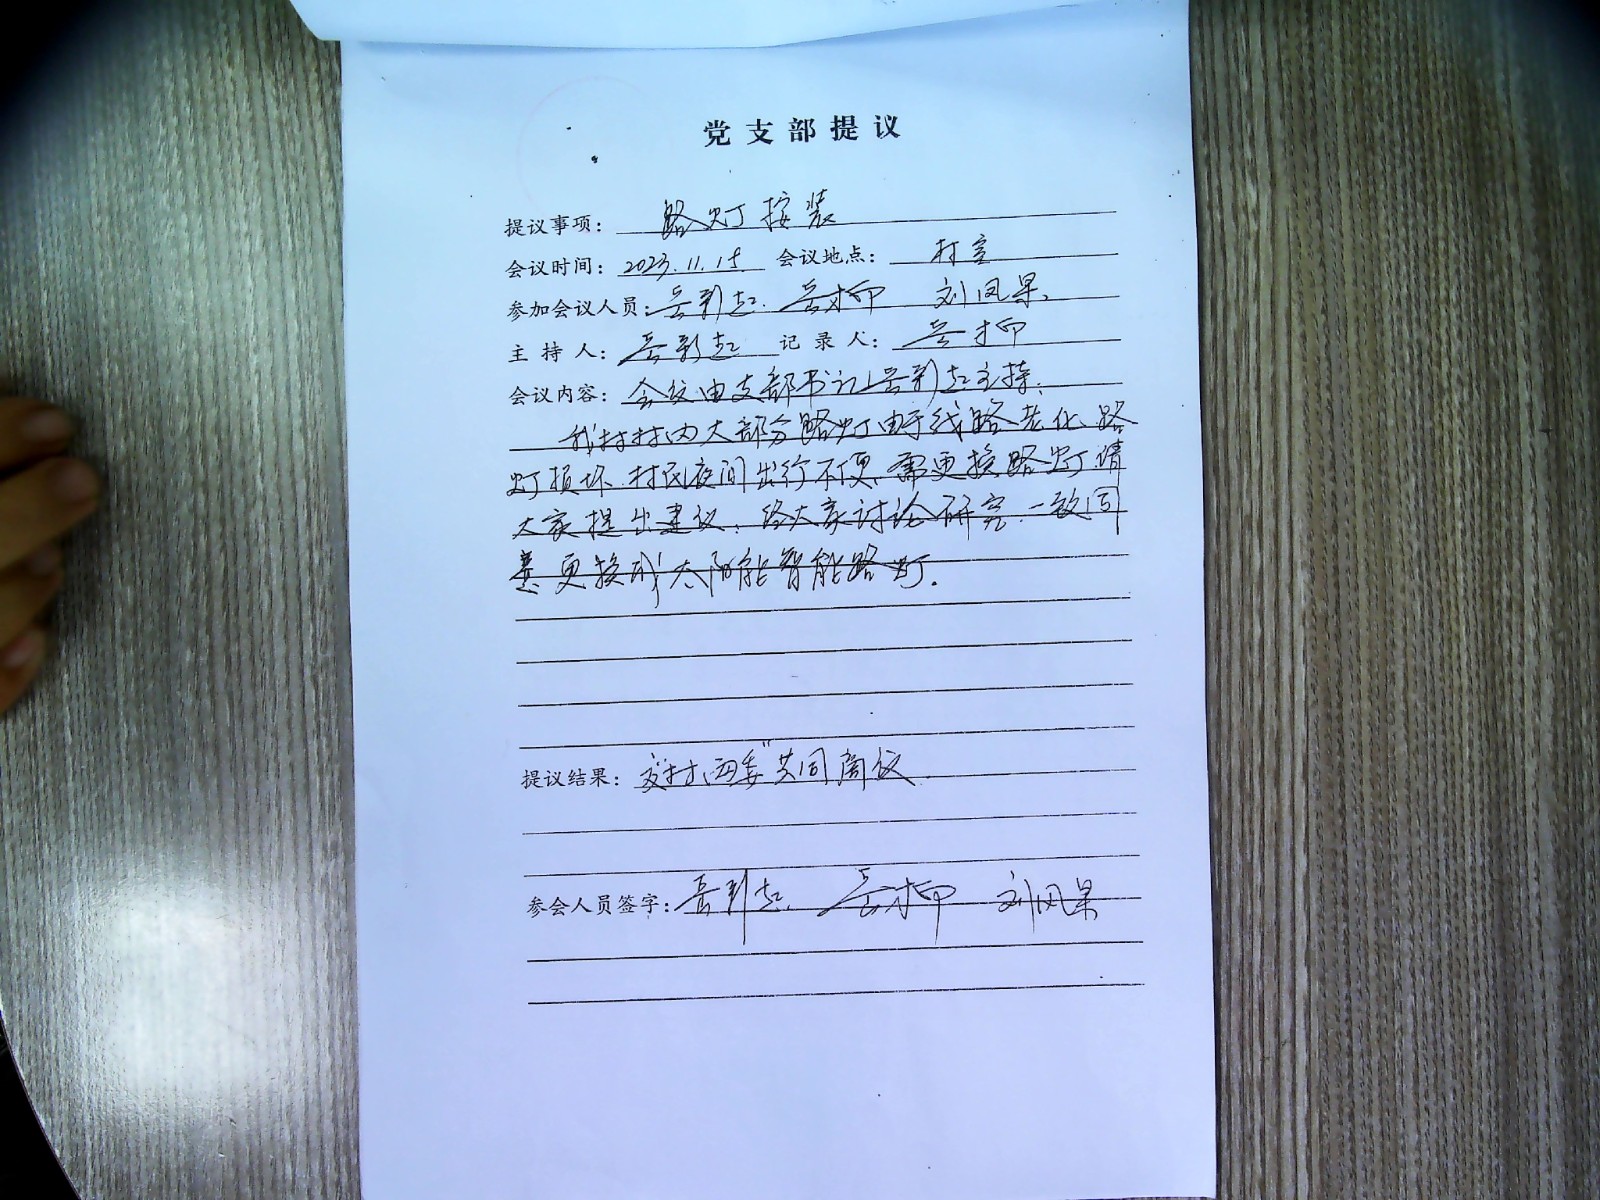 党支部提议
提议事项：路灯按装
会议时间：2023.11.15 会议地点：村室
参加会议人员：岳彩起. 岳柳 刘凤果、
主持人：岳彩起 记录人：岳柳
会议内容：会议由支部书记岳彩起主持.
我村村内大部分路灯由于线路老化、路
灯损坏.村民夜间出行不便、需更换路灯.请
大家提出建议；经大家讨论研究.一致同
意更换成太阳能智能路灯.
提议结果：交村"两委"共同商议.
参会人员签字：岳彩起. 岳柳 刘凤果